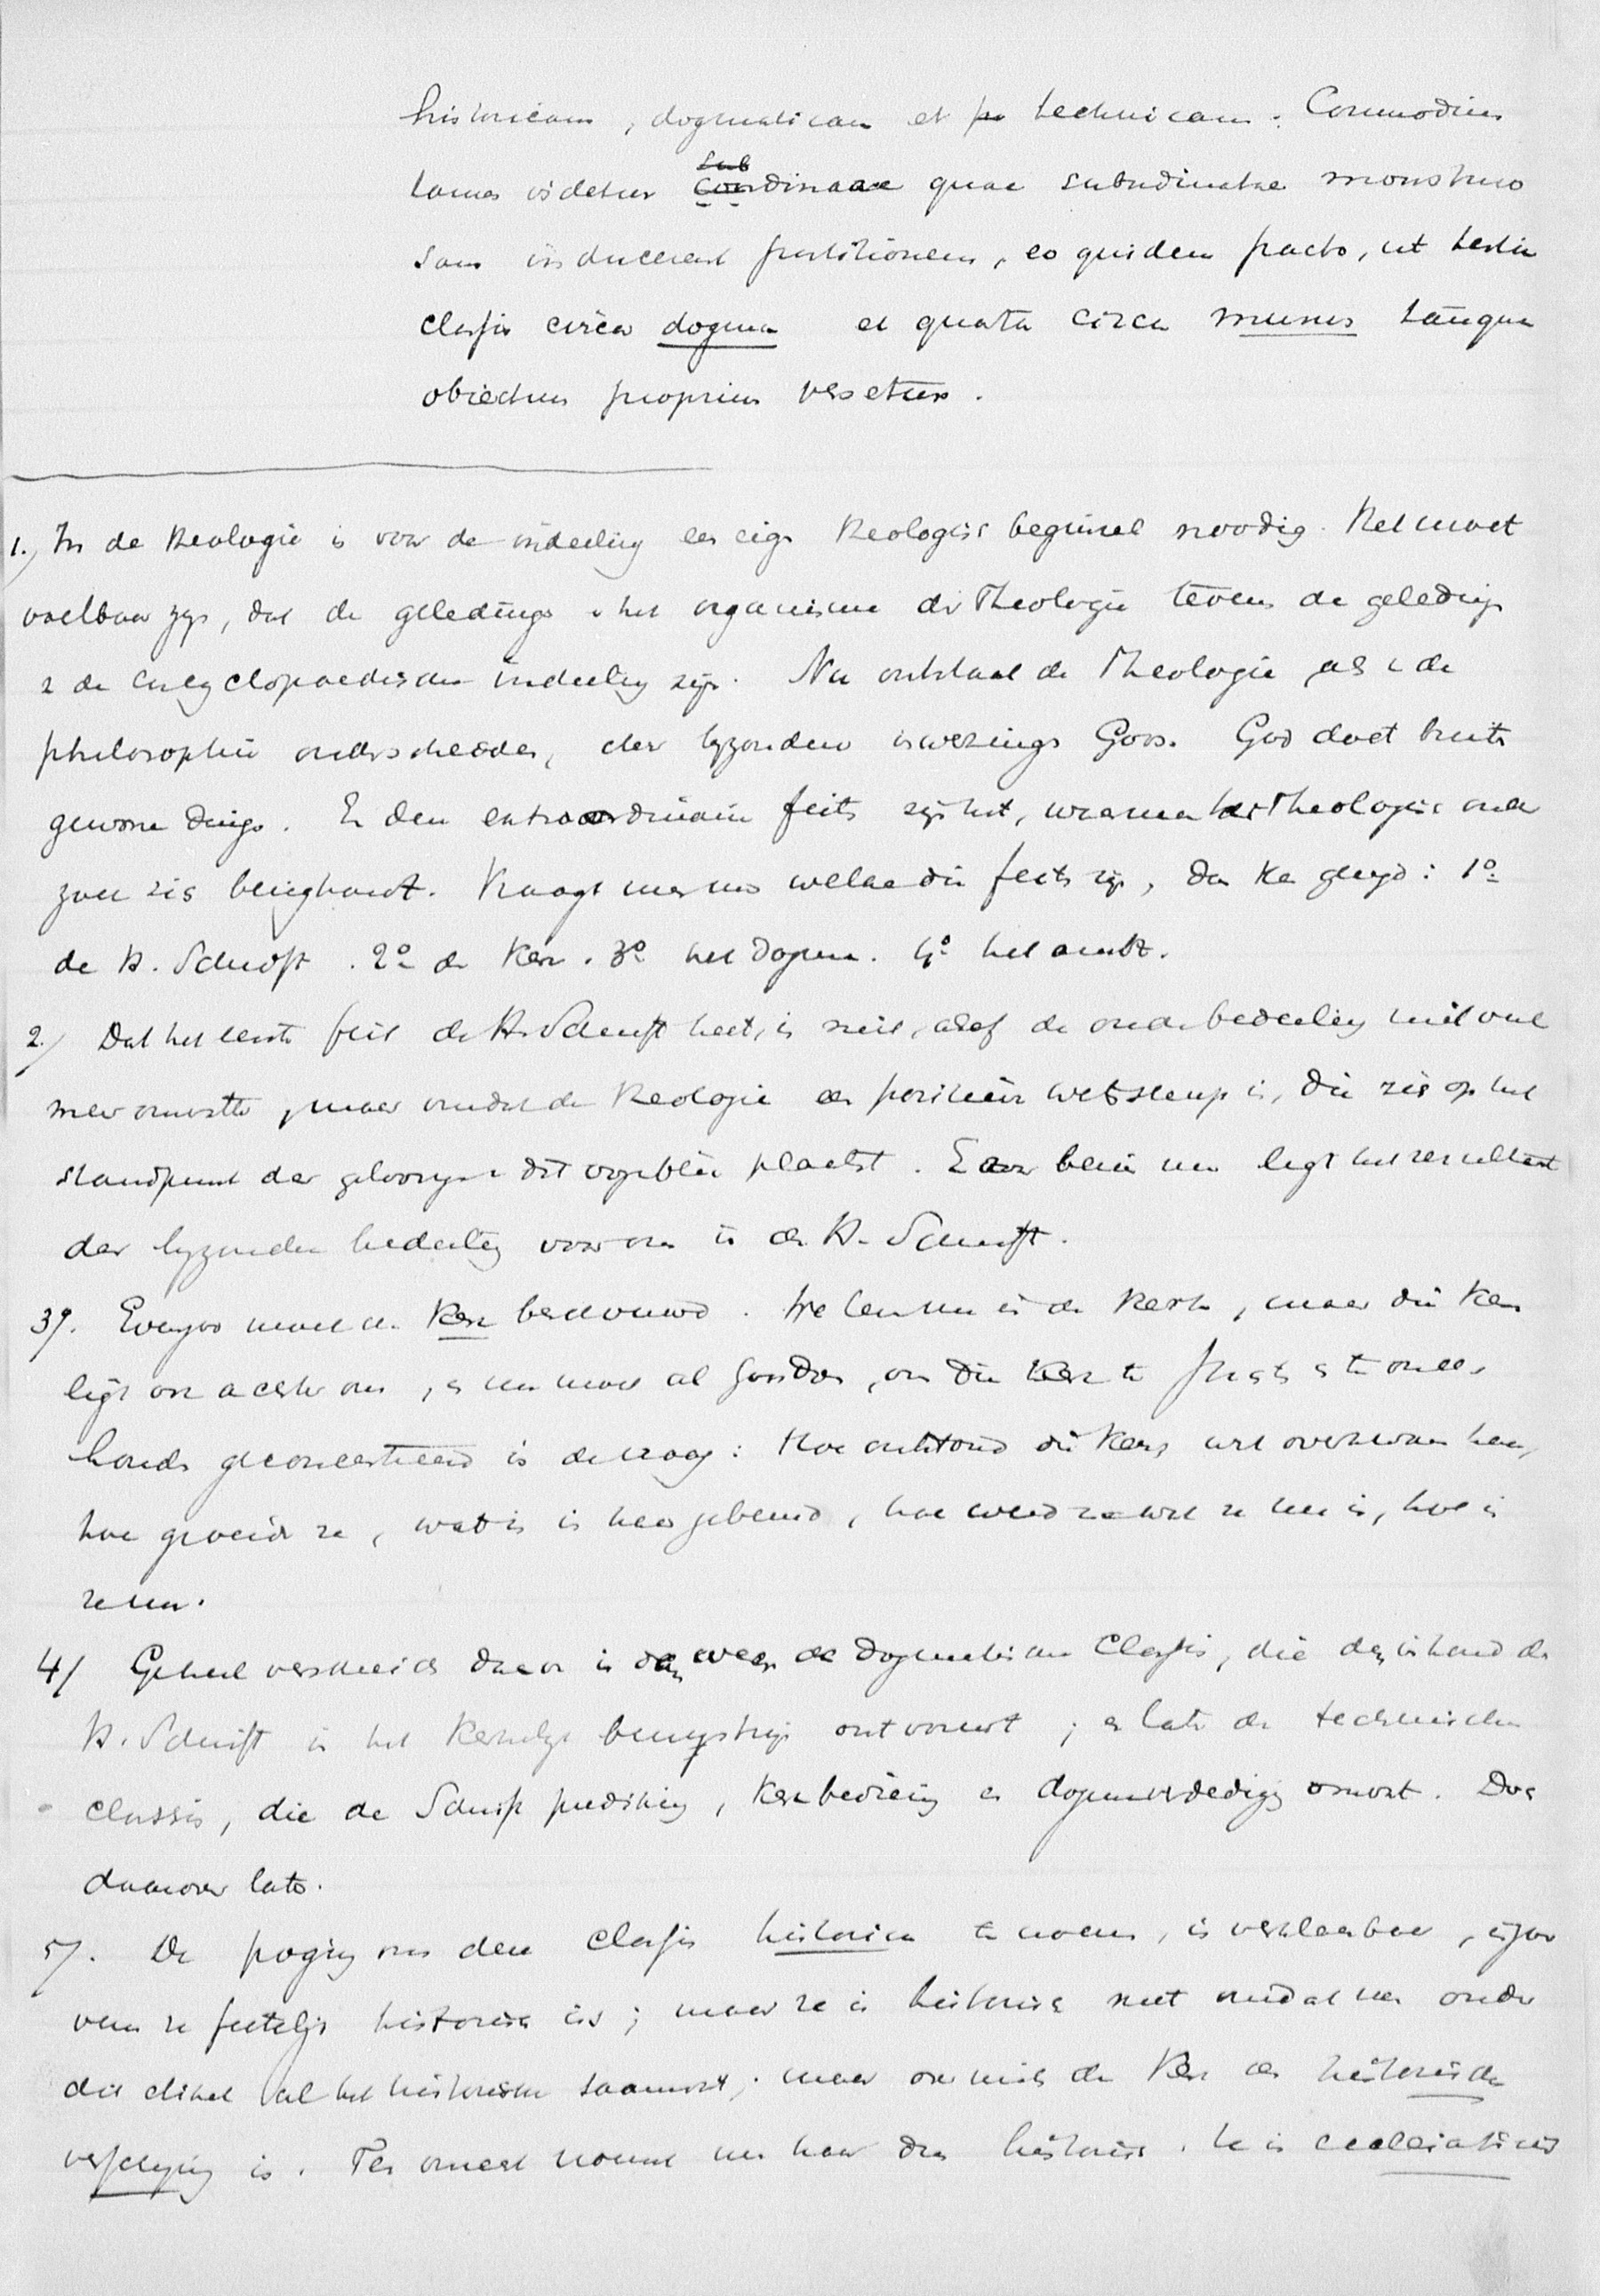 historicam, dogmaticam et technicam. Commodius
tamen videtur Coordinatae quae subordinatae monstruo
sam inducerent partitionem, eo quidem pacto, ut tertia
classis circa dogma et quarta circa munus tanquam
obiectum proprium versetur.
1. In de theologie is voor de indeeling een eigen theologisch beginsel noodig. Het moet
voelbaar zijn, dat de geledingen v. het organisme der Theologie tevens de geledingen
v. de encyclopaedische indeeling zijn. Nu ontstaat de Theologie, als v. de
philosophie onderscheiden, door bijzondere inwerkingen Gods. God doet buiten
gewone dingen. En deze extraordinaire feiten zijn het, waarmee de Theologie onder
zoek zich bezighoudt. Vraagt men nu welke die feiten zijn, dan krijgt: 1º
de H. Schrift. 2º de Kerk. 3º het dogma. 4º het ambt.
2. Dat het eerste feit de H. Schrift heet, is niet, alsof de onderbedeeling niet veel
meer omvatte, maar omdat de theologie een positieve wetenschap is, die zich op het
standpunt der geloovigen in dit oogenblik plaatst. En voor hem nu ligt het resultaat
der bijzondere bedeeling voor ons in de H. Schrift.
3. Evenzoo moet de Kerk beschouwd. We leven nu in de Kerk, maar die Kerk
ligt ook achter ons, en nu moet al, om die Kerk te
geconstateerd is de vraag: Hoe ontstond die Kerk, wat overkwam haar,
hoe groeide ze, wat is in haar gebeurd, hoe werd ze wat ze nu is, hoe is
ze nu.
4. Geheel verscheiden daarvan is dan weer de dogmatische Classis, die den inhoud der
H. Schrift in het Kerkelijk bewustzijn ontvouwt; en later de technische
classis, die de Schrift prediking, Kerkbediening en dogmaverdediging omvat. Doch
daarover later.
5. De poging om deze classis historica te noemen, is verklaarbaar, in zoo
verre ze feitelijk historisch is; maar ze is historisch niet omdat men onder
dit etiket al het historische saamvat, maar overmits de Kerk een historische
verschijning is. Ten onrecht noemt men haar dus historisch. Ze is ecclesiastica